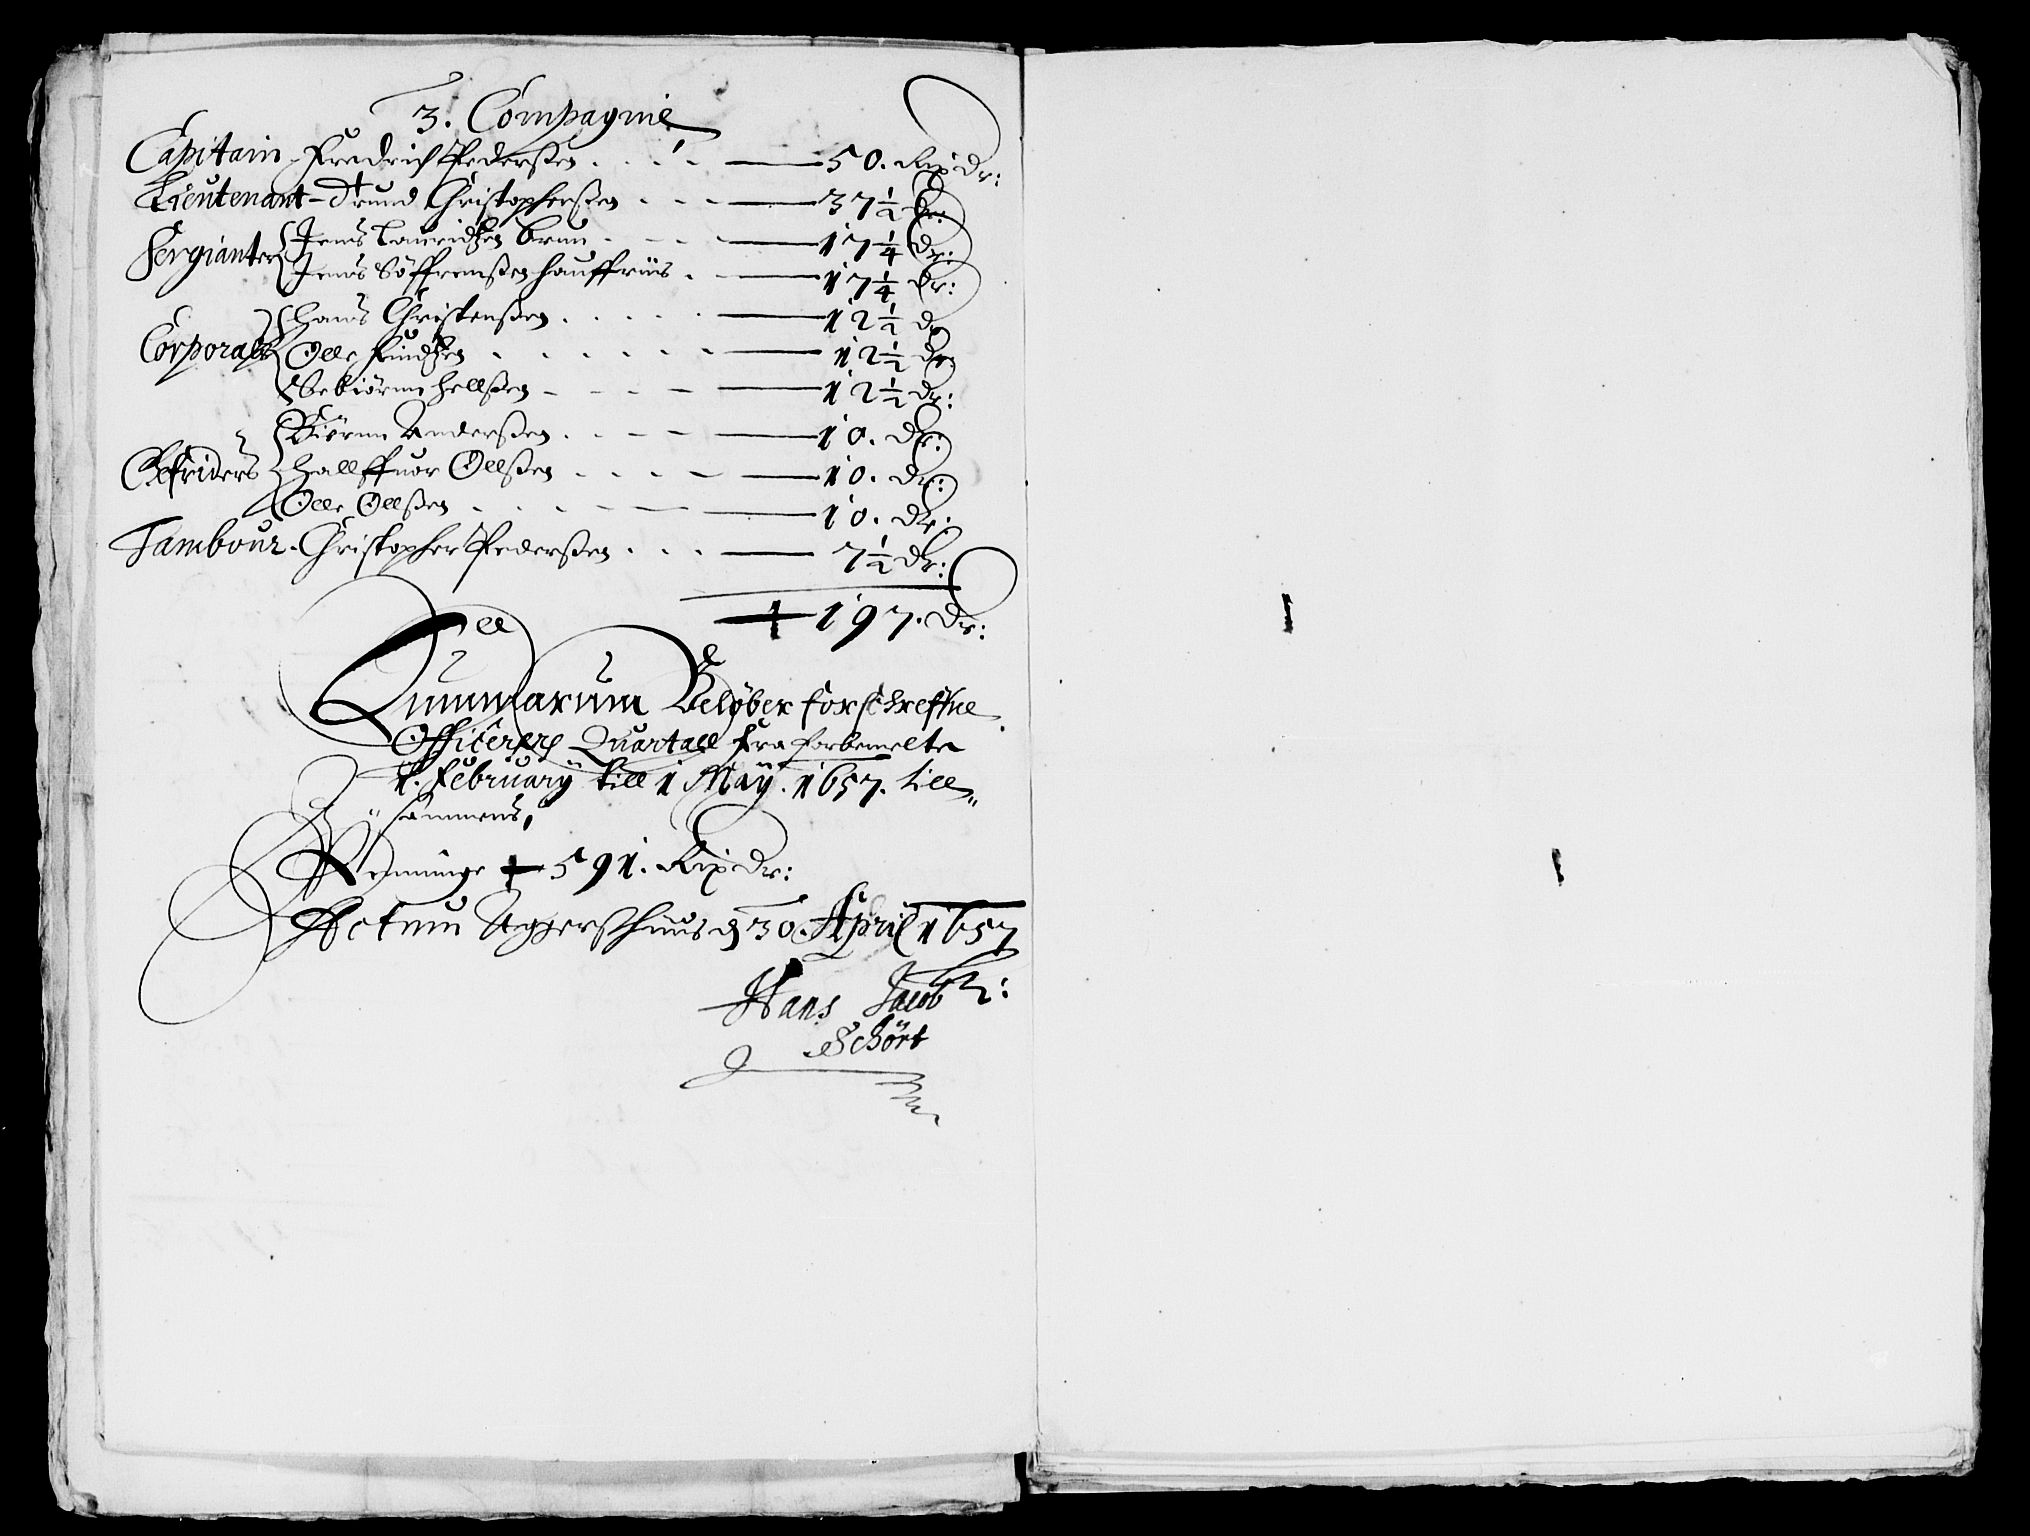 3. Compagnie
Capitain - Fredrich Pederßen . . . . — 50. Rix dr:
Lieutenant - Trund Christopherßen . . . — 37 1/2 dr:
Sergianter { Jens Lauridtzen Brun . . . — 17 1/4 dr:
Jens Søffrenßen Hauffriis . — 17 1/4 dr:
Corporals { Hans Christenßen . . . . — 12 1/2 dr
Olle Knudtzen . . . . . — 12 1/2 dr
Asbiørnn Hellßen - - - - — 12 1/2 dr:
Gefriders { Biørnn Anderßen . . . — 10. dr:
Hallffuor Ollßen . . . . — 10. dr:
Olle Ollßen . . . . — 10. dr:
Tambour - Christopher Pederßen . . . — 7 1/2 dr:
197. dr:
Summarum Beløber forschreffne
Officerers Quartall fra forbemelte
1. February till 1 Maÿ. 1657. till
sammens,
Penninge 591. Rix dr:
Actum Aggerßhuus d 30. April 1657
Hans Jacob
Schört